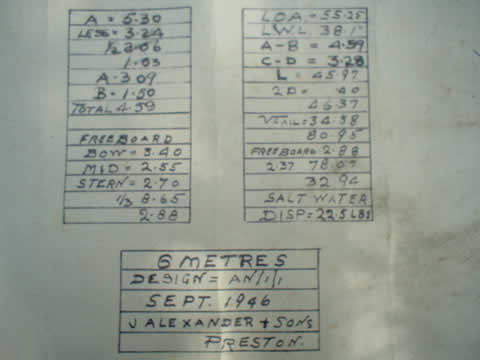 A = 5.30
LESS = 3.24
½ 2.06
1.03
A = 3.09
B = 1.50
TOTAL 4.59
FREEBOARD
BOW = 3.40
MID = 2.55
STERN = 2.70
⅓ 8.65
2.88
L.O.A. = 55.25
L.W.L. 38.1"
A-B = 4.59
C-D = 3.28
L = 45.97
2D = .40
46.37
√SAIL = 34.58
80.95
FREEBOARD 2.88
2.37 78.07
32.94
SALT WATER
DISP = 22.5 LBS
6 METRES
DESIGN = AN/1/1
SEPT. 1946
J ALEXANDER + SONS
PRESTON.